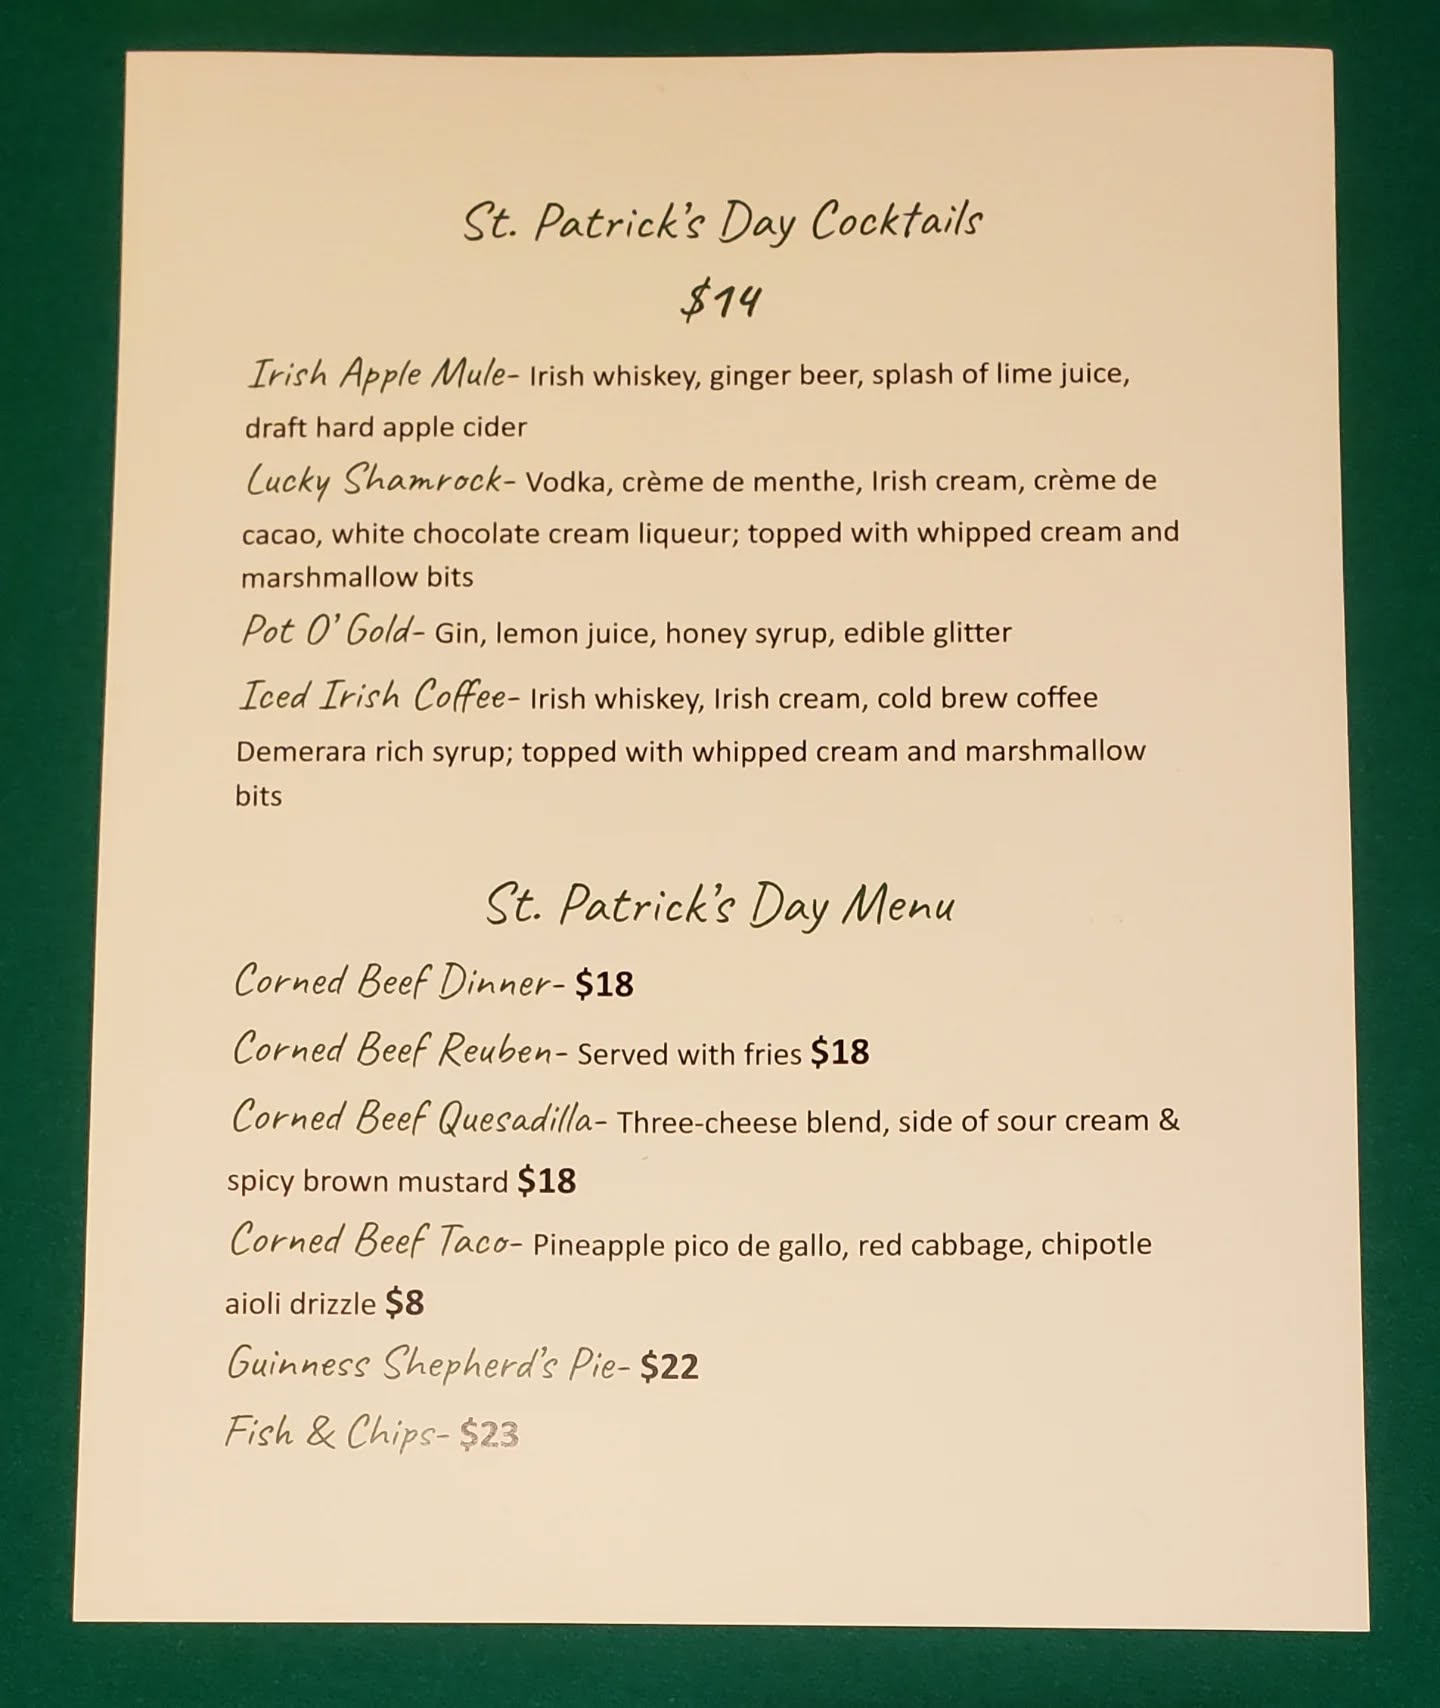 St. Patrick's Day Cocktails
$14
Irish Apple Mule- Irish whiskey, ginger beer, splash of lime juice,
draft hard apple cider
Lucky Shamrock- Vodka, crème de menthe, Irish cream, crème de
cacao, white chocolate cream liqueur; topped with whipped cream and
marshmallow bits
Pot O' Gold- Gin, lemon juice, honey syrup, edible glitter
Iced Irish Coffee- Irish whiskey, Irish cream, cold brew coffee
Demerara rich syrup; topped with whipped cream and marshmallow
bits
St. Patrick's Day Menu
Corned Beef Dinner- $18
Corned Beef Reuben- Served with fries $18
Corned Beef Quesadilla- Three-cheese blend, side of sour cream &
spicy brown mustard $18
Corned Beef Taco- Pineapple pico de gallo, red cabbage, chipotle
aioli drizzle $8
Guinness Shepherd's Pie- $22
Fish & Chips- $23